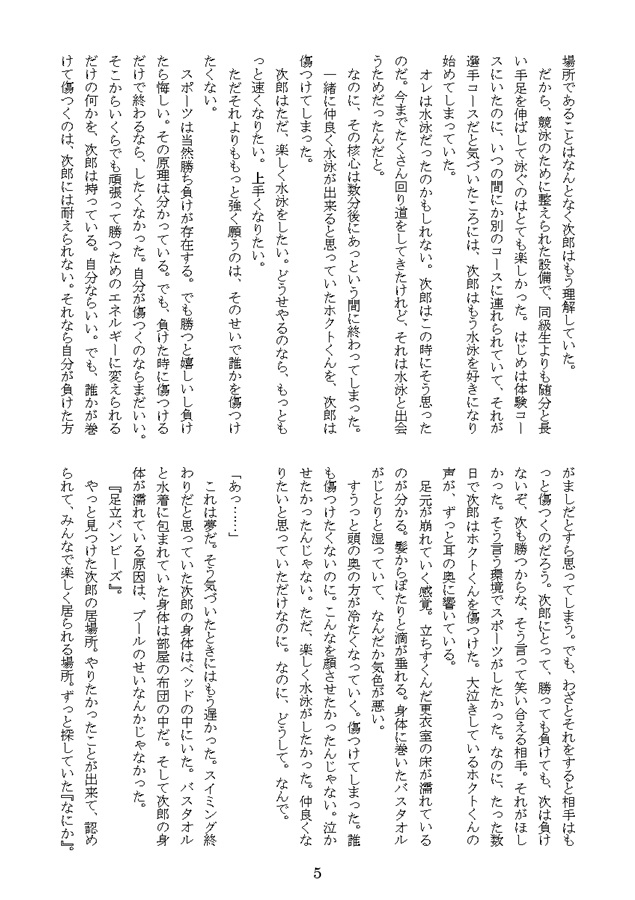 場所であることはなんとなく次郎はもう理解していた。
だから、競泳のために整えられた設備で、同級生よりも随分と長
い手足を伸ばして泳ぐのはとても楽しかった。はじめは体験コー
スにいたのに、いつの間にか別のコースに連れられていて、それが
選手コースだと気づいたころには、次郎はもう水泳を好きになり
始めてしまっていた。
オレは水泳だったのかもしれない。次郎はこの時にそう思った
のだ。今までたくさん回り道をしてきたけれど、それは水泳と出会
うためだったんだと。
なのに、その核心は数分後にあっという間に終わってしまった。
一緒に仲良く水泳が出来ると思っていたホクトくんを、次郎は
傷つけてしまった。
次郎はただ、楽しく水泳をしたい。どうせやるのなら、もっとも
っと速くなりたい。上手くなりたい。
ただそれよりももっと強く願うのは、そのせいで誰かを傷つけ
たくない。
スポーツは当然勝ち負けが存在する。でも勝つと嬉しいし負け
たら悔しい。その原理は分かっている。でも、負けた時に傷つける
だけで終わるなら、したくなかった。自分が傷つくのならまだいい。
そこからいくらでも頑張って勝つためのエネルギーに変えられる
だけの何かを、次郎は持っている。自分ならいい。でも、誰かが巻
けて傷つくのは、次郎には耐えられない。それなら自分が負けた方
がましだとすら思ってしまう。でも、わざとそれをすると相手はも
っと傷つくのだろう。次郎にとって、勝っても負けても、次は負け
ないぞ、次も勝つからな、そう言って笑い合える相手。それがほし
かった。そう言う環境でスポーツがしたかった。なのに、たった数
日で次郎はホクトくんを傷つけた。大泣きしているホクトくんの
声が、ずっと耳の奥に響いている。
足元が崩れていく感覚。立ちすくんだ更衣室の床が濡れている
のが分かる。髪からぽたりと滴が垂れる。身体に巻いたバスタオル
がじとりと湿っていて、なんだか気色が悪い。
すうっと頭の奥の方が冷たくなっていく。傷つけてしまった。誰
も傷つけたくないのに。こんなを顔させたかったんじゃない。泣か
せたかったんじゃない。ただ、楽しく水泳がしたかった。仲良くな
りたいと思っていただけなのに。なのに、どうして。なんで。
「あっ……」
これは夢だ。そう気づいたときにはもう遅かった。スイミング終
わりだと思っていた次郎の身体はベッドの中にいた。バスタオル
と水着に包まれていた身体は部屋の布団の中だ。そして次郎の身
体が濡れている原因は、プールのせいなんかじゃなかった。
『足立バンビーズ』。
やっと見つけた次郎の居場所。やりたかったことが出来て、認め
られて、みんなで楽しく居られる場所。ずっと探していた『なにか』。
5